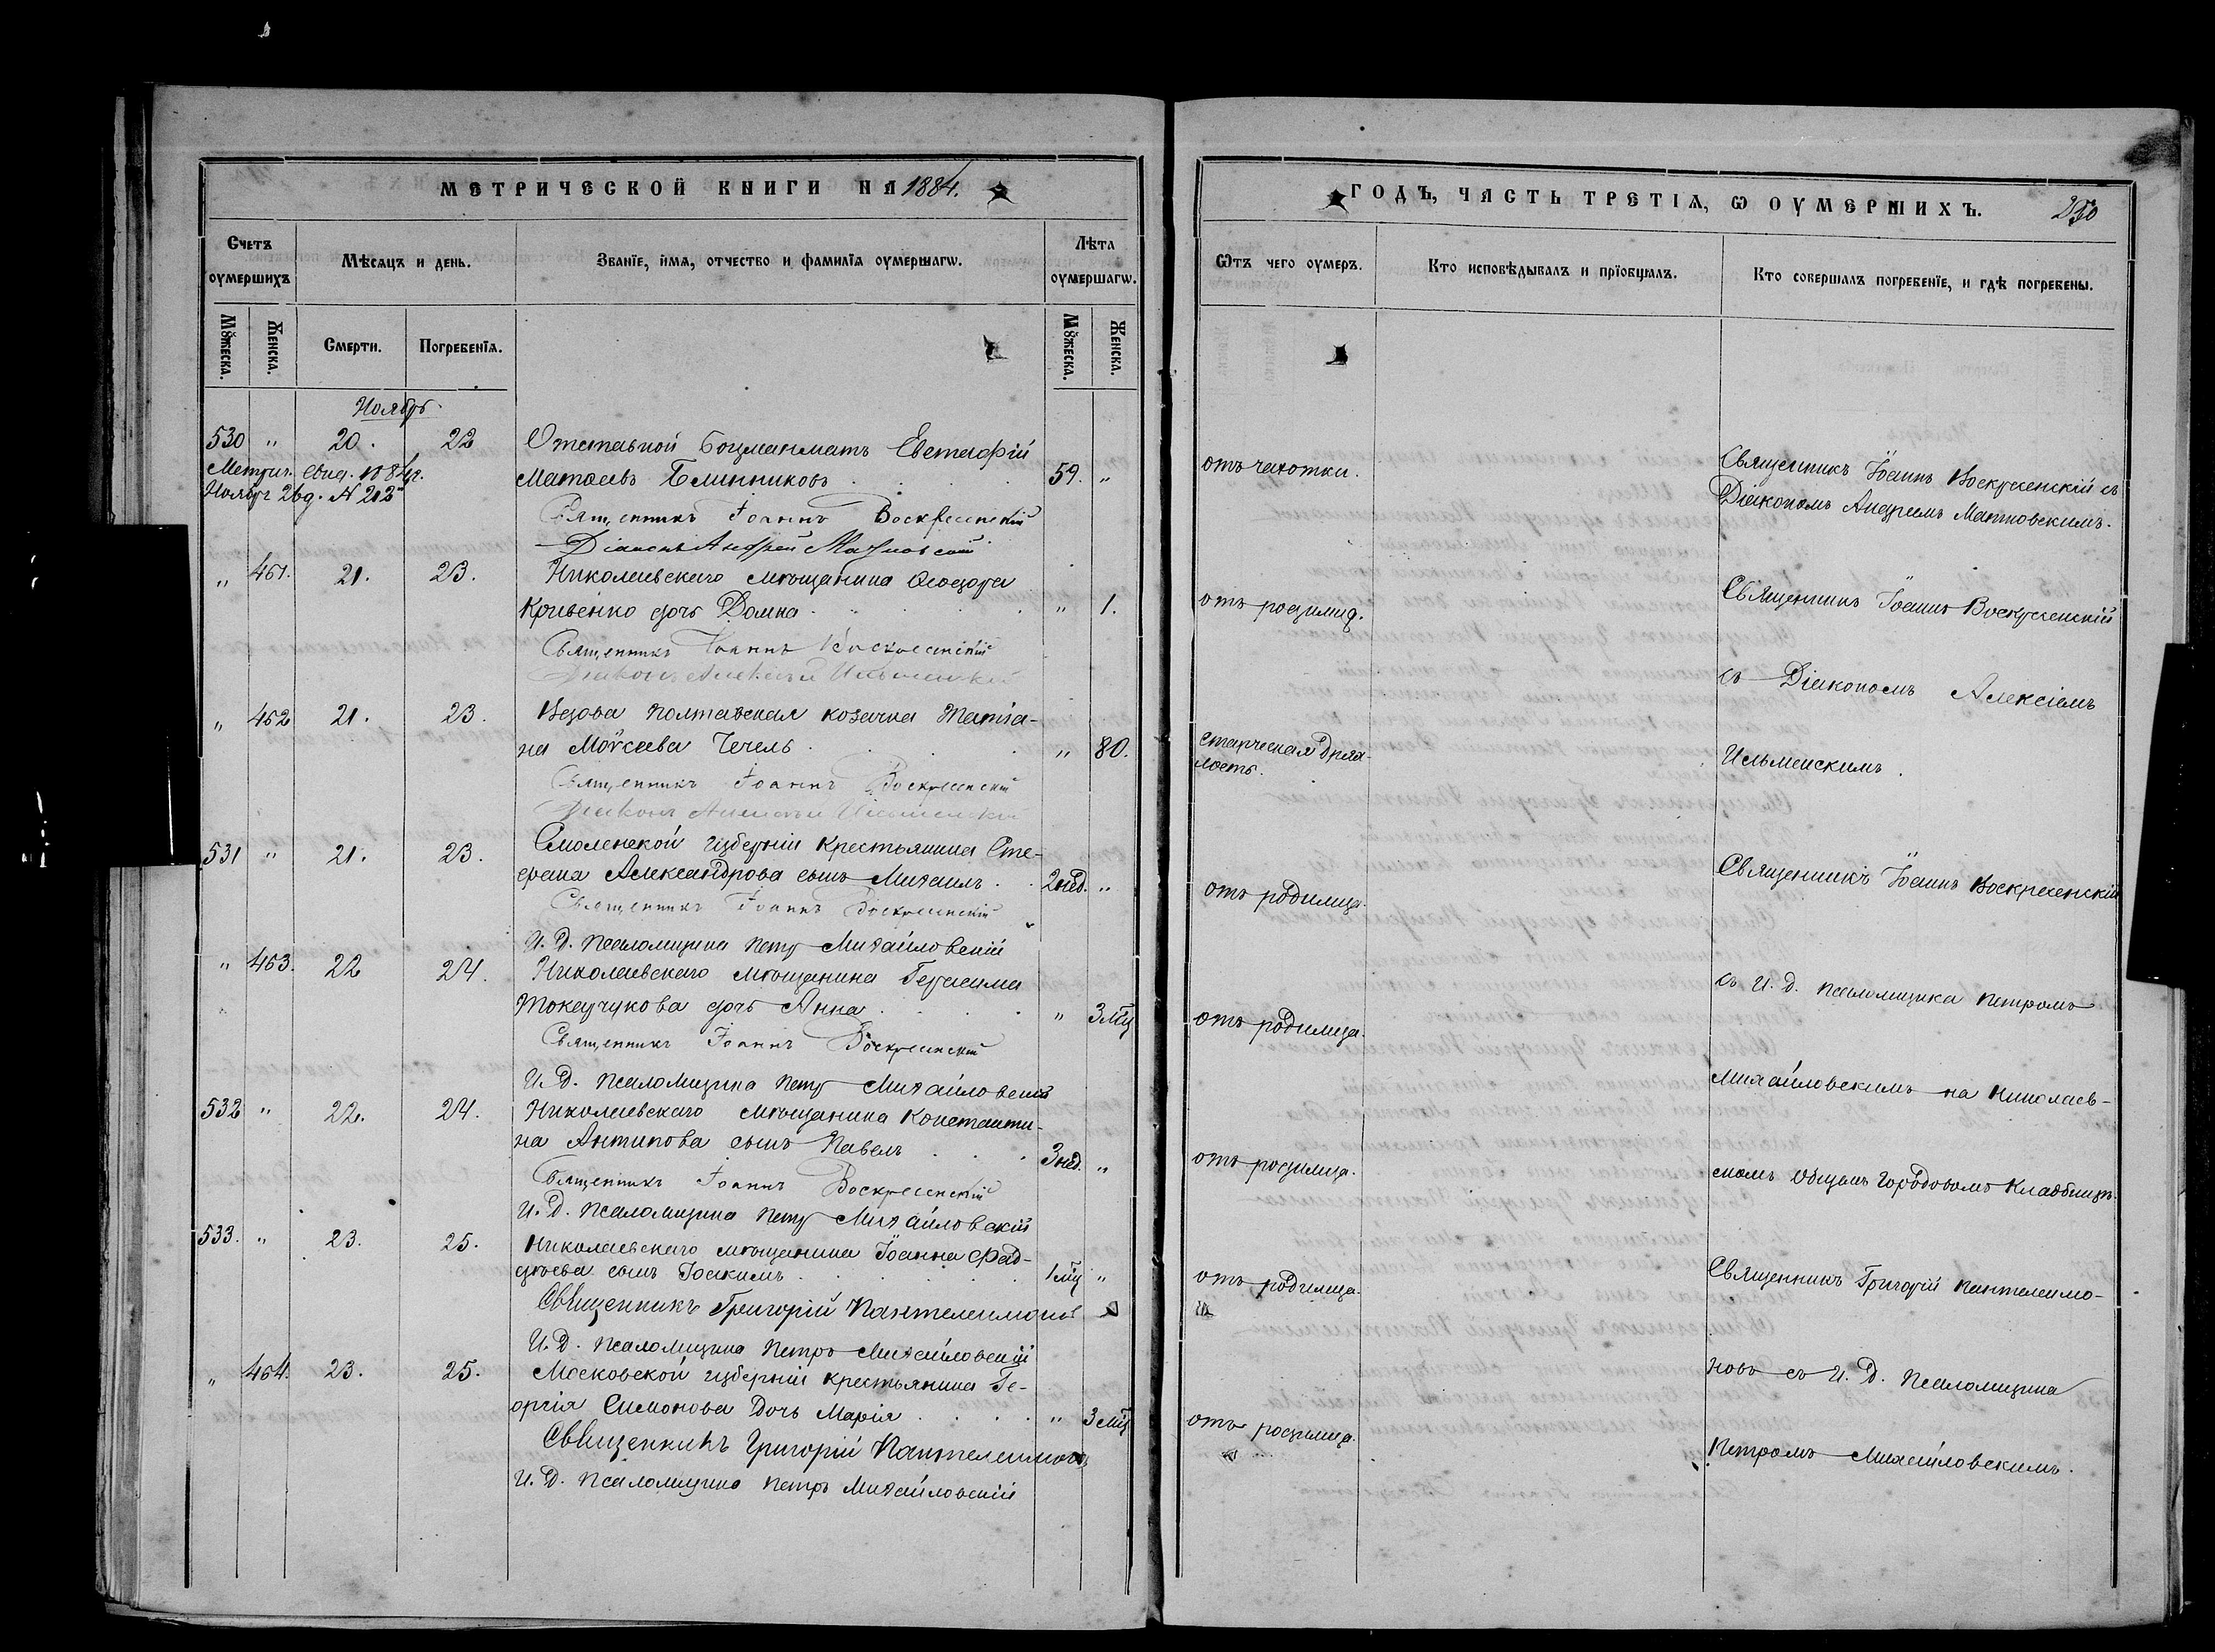 МЕТРИЧЕСКОЙ КНИГИ НА 1884.
Счетъ оумершихъ
Мѣсяцъ и день.
Званїе, имя, отчество и фамилїя оумершагѡ.
Лѣта оумершагѡ.
Мꙋжеска.
Женска.
Смерти.
Погребенїя.
Мꙋжеска.
Женска.
Ноябрь
530 " 20. 22 Отставной Боцманматъ Евстафій
Метрич. свид. 1884г.
Матѳеевъ Блинниковъ 59. "
Ноября 26 д. N 213
Священникъ Іоаннъ Воскресенскій
Діаконъ Андрей Матковскій
" 461. 21. 23. Николаевскаго мѣщанина Ѳеодора
Кривенко дочь Домна " 1.
Священникъ Іоаннъ Воскресенскій
Діаконъ Алексій Ильменскій
" 462 21. 23. Вдова Полтавская козачка Татіа-
на Моѵсеева Чечель " 80.
Священникъ Іоаннъ Воскресенскій
Діаконъ Алексій Ильменскій
531 " 21. 23. Смоленской губерніи крестьянина Сте-
фана Александрова сынъ Михаилъ 2 нед. "
Священникъ Іоаннъ Воскресенскій
И. Д. Псаломщика Петръ Михайловскій
" 463. 22 24. Николаевскаго мѣщанина Герасима
Токарчукова дочь Анна " 3 мц
Священникъ Іоаннъ Воскресенскій
И. Д. Псаломщика Петръ Михайловскій
532 " 22. 24. Николаевскаго мѣщанина Константи-
на Антипова сынъ Павелъ 3 нед. "
Священникъ Іоаннъ Воскресенскій
И. Д. Псаломщика Петръ Михайловскій
533. " 23. 25. Николаевскаго мѣщанина Іоанна Фад-
дѣева сынъ Іоакимъ 1 мц "
Священникъ Григорій Пантелеимоновъ
И. Д. Псаломщика Петръ Михайловскій
" 464. 23. 25. Московской губерніи крестьянина Ге-
оргія Симонова дочь Марія " 3 мц
Священникъ Григорій Пантелеимоновъ
И. Д. Псаломщика Петръ Михайловскій
ГОДЪ, ЧАСТЬ ТРЕТІЯ, Ѡ ОУМЕРШИХЪ. 250
Ѿтъ чего оумеръ.
Кто исповѣдывалъ и прїобщалъ.
Кто совершалъ погребенїе, и гдѣ погребены.
отъ чахотки.
Священникъ Іоаннъ Воскресенскій съ
Діакономъ Андреемъ Матковскимъ.
отъ родимца.
Священникъ Іоаннъ Воскресенскій
съ Діакономъ Алексіемъ
старческая дрях-
лость.
Ильменскимъ.
отъ родимца.
Священникъ Іоаннъ Воскресенскій
съ И. Д. Псаломщика Петромъ
отъ родимца.
Михайловскимъ на Николаев-
отъ родимца.
скомъ общемъ городовомъ кладбищѣ.
отъ родимца.
Священникъ Григорій Пантелеимо-
новъ съ И. Д. Псаломщика
отъ родимца.
Петромъ Михайловскимъ.